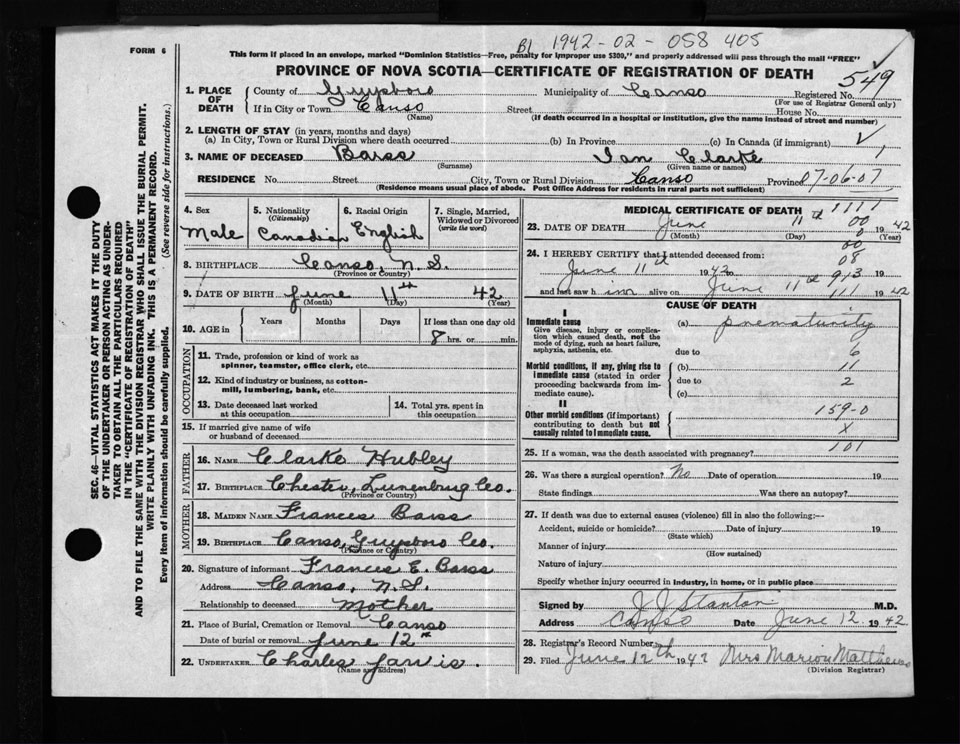 B1 1942-02-058 405
FORM 6
This form if placed in an envelope, marked "Dominion Statistics—Free, penalty for improper use $300," and properly addressed will pass through the mail "FREE"
PROVINCE OF NOVA SCOTIA—CERTIFICATE OF REGISTRATION OF DEATH
549
1. PLACE OF DEATH
County of Guysboro Municipality of Canso Registered No.
(For use of Registrar General only)
If in City or Town Canso Street House No.
(Name) (If death occurred in a hospital or institution, give the name instead of street and number)
2. LENGTH OF STAY (in years, months and days)
(a) In City, Town or Rural Division where death occurred (b) In Province (c) In Canada (if immigrant)
3. NAME OF DECEASED Barss Ian Clarke 1
(Surname) (Given name or names)
RESIDENCE No. Street City, Town or Rural Division Canso Province 07-06-07
(Residence means usual place of abode. Post Office Address for residents in rural parts not sufficient)
4. Sex
Male
5. Nationality (Citizenship)
Canadian
6. Racial Origin
English
7. Single, Married, Widowed or Divorced (write the word)
8. BIRTHPLACE Canso, N.S.
(Province or Country)
9. DATE OF BIRTH June 11th 42
(Month) (Day) (Year)
10. AGE in
Years Months Days If less than one day old
8 hrs. or min.
OCCUPATION
11. Trade, profession or kind of work as spinner, teamster, office clerk, etc.
12. Kind of industry or business, as cotton-mill, lumbering, bank, etc.
13. Date deceased last worked at this occupation
14. Total yrs. spent in this occupation
15. If married give name of wife or husband of deceased
FATHER
16. NAME Clarke Hubley
17. BIRTHPLACE Chester, Lunenburg Co.
(Province or Country)
MOTHER
18. MAIDEN NAME Frances Barss
19. BIRTHPLACE Canso, Guysboro Co.
(Province or Country)
20. Signature of informant Frances E. Barss
Address Canso, N.S.
Relationship to deceased Mother
21. Place of Burial, Cremation or Removal Canso
Date of burial or removal June 12th
22. UNDERTAKER Charles Jarvis.
(Name and address)
MEDICAL CERTIFICATE OF DEATH
1111
23. DATE OF DEATH June 11th 00 1942
(Month) (Day) (Year)
00
24. I HEREBY CERTIFY that I attended deceased from:
08
June 11th 1942 to
913
and last saw him alive on June 11th 1942
111
CAUSE OF DEATH
I
Immediate cause (a) prematurity
Give disease, injury or complication which caused death, not the mode of dying, such as heart failure, asphyxia, asthenia, etc.
due to 6
Morbid conditions, if any, giving rise to Immediate cause (stated in order proceeding backwards from immediate cause).
(b) 11
due to 2
(c)
II
Other morbid conditions (if important) contributing to death but not causally related to Immediate cause.
159-0
X
101
25. If a woman, was the death associated with pregnancy?
26. Was there a surgical operation? No Date of operation 19
State findings Was there an autopsy?
27. If death was due to external causes (violence) fill in also the following:—
Accident, suicide or homicide? Date of injury 19
(State which)
Manner of injury
(How sustained)
Nature of injury
Specify whether injury occurred in industry, in home, or in public place
Signed by J J Stanton M.D.
Address Canso Date June 12 1942
28. Registrar's Record Number
29. Filed June 12th 1942 Mrs Marion Matthews
(Division Registrar)
SEC. 46—VITAL STATISTICS ACT MAKES IT THE DUTY
OF THE UNDERTAKER OR PERSON ACTING AS UNDER-
TAKER TO OBTAIN ALL THE PARTICULARS REQUIRED
IN THE "CERTIFICATE OF REGISTRATION OF DEATH"
AND TO FILE THE SAME WITH THE DIVISION REGISTRAR WHO SHALL ISSUE THE BURIAL PERMIT.
WRITE PLAINLY WITH UNFADING INK. THIS IS A PERMANENT RECORD.
Every item of information should be carefully supplied. (See reverse side for instructions.)